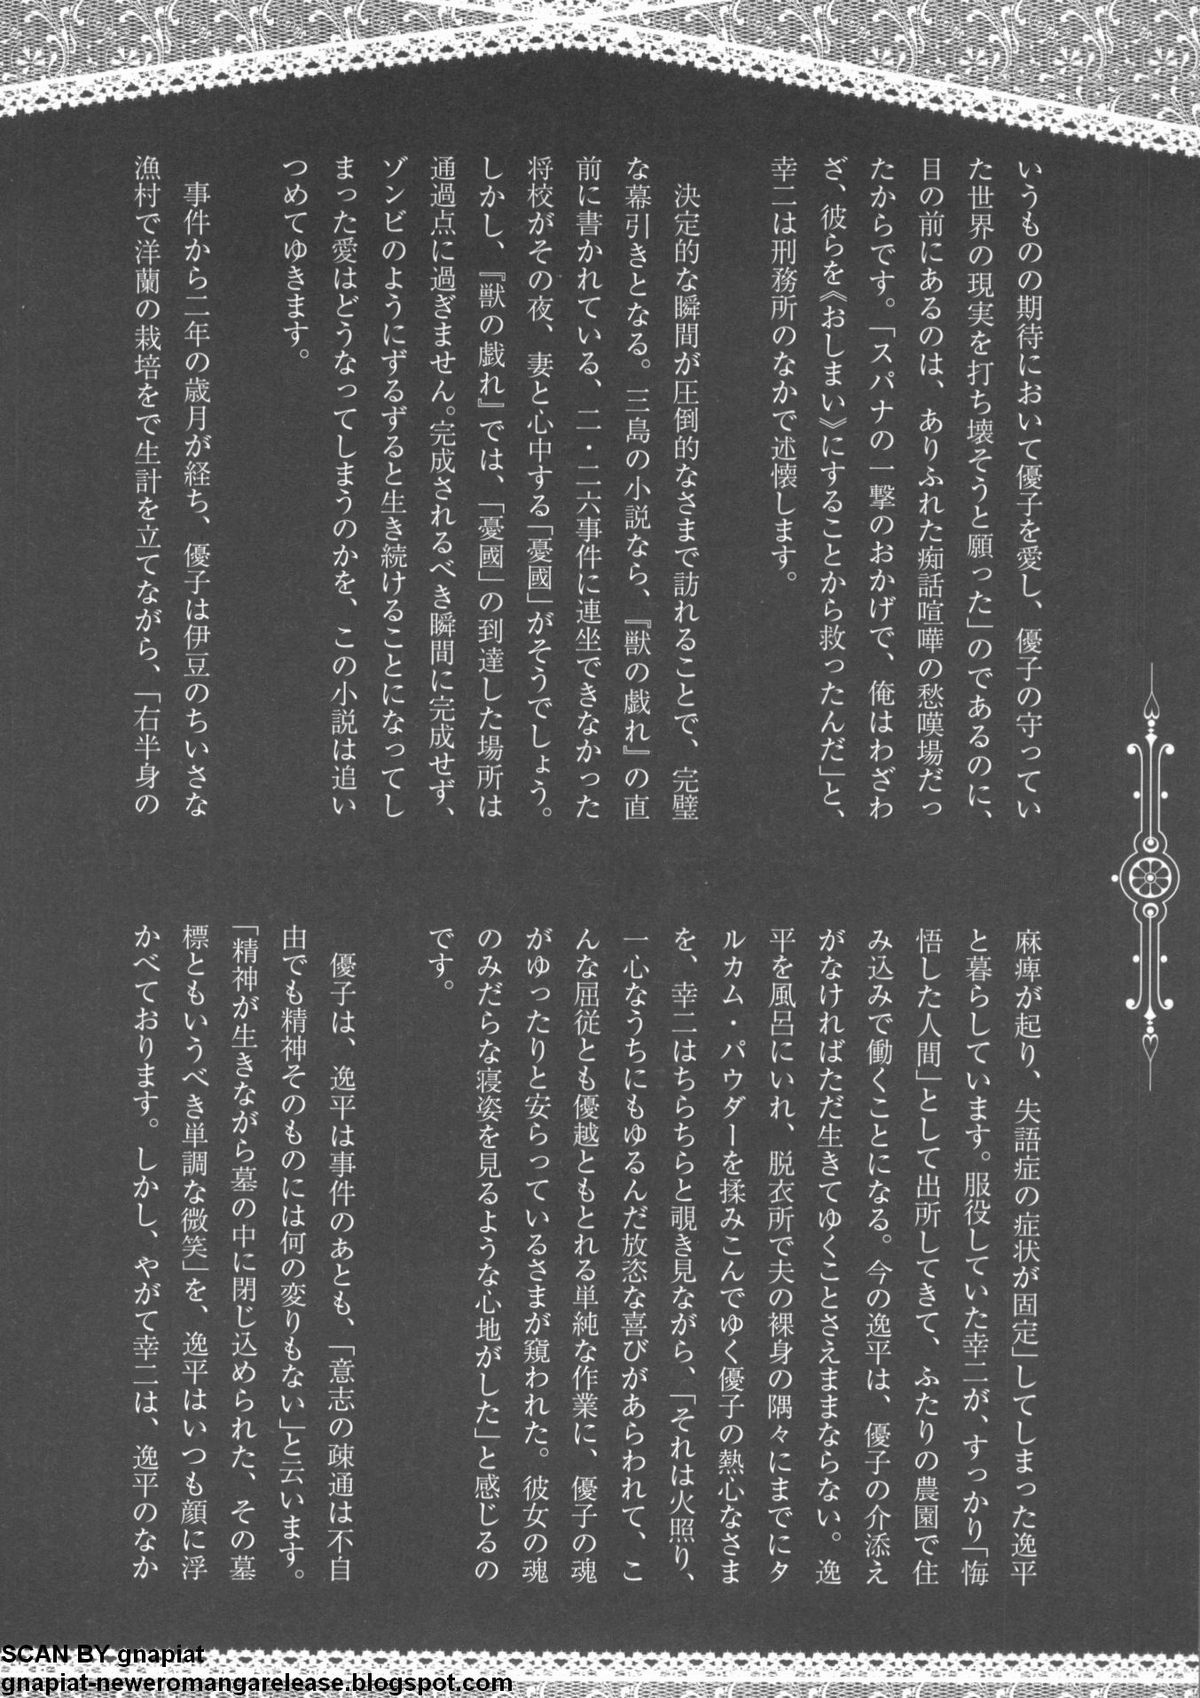 いうものの期待において優子を愛し、優子の守ってい
た世界の現実を打ち壊そうと願った」のであるのに、
目の前にあるのは、ありふれた痴話喧嘩の愁嘆場だっ
たからです。「スパナの一撃のおかげで、俺はわざわ
ざ、彼らを《おしまい》にすることから救ったんだ」と、
幸二は刑務所のなかで述懐します。
決定的な瞬間が圧倒的なさまで訪れることで、完璧
な幕引きとなる。三島の小説なら、『獣の戯れ』の直
前に書かれている、二・二六事件に連坐できなかった
将校がその夜、妻と心中する「憂國」がそうでしょう。
しかし、『獣の戯れ』では、「憂國」の到達した場所は
通過点に過ぎません。完成されるべき瞬間に完成せず、
ゾンビのようにずるずると生き続けることになってし
まった愛はどうなってしまうのかを、この小説は追い
つめてゆきます。
事件から二年の歳月が経ち、優子は伊豆のちいさな
漁村で洋蘭の栽培をで生計を立てながら、「右半身の
麻痺が起り、失語症の症状が固定」してしまった逸平
と暮らしています。服役していた幸二が、すっかり「悔
悟した人間」として出所してきて、ふたりの農園で住
み込みで働くことになる。今の逸平は、優子の介添え
がなければただ生きてゆくことさえままならない。逸
平を風呂にいれ、脱衣所で夫の裸身の隅々にまでにタ
ルカム・パウダーを揉みこんでゆく優子の熱心なさま
を、幸二はちらちらと覗き見ながら、「それは火照り、
一心なうちにもゆるんだ放恣な喜びがあらわれて、こ
んな屈従とも優越ともとれる単純な作業に、優子の魂
がゆったりと安らっているさまが窺われた。彼女の魂
のみだらな寝姿を見るような心地がした」と感じるの
です。
優子は、逸平は事件のあとも、「意志の疎通は不自
由でも精神そのものには何の変りもない」と云います。
「精神が生きながら墓の中に閉じ込められた、その墓
標ともいうべき単調な微笑」を、逸平はいつも顔に浮
かべております。しかし、やがて幸二は、逸平のなか
SCAN BY gnapiat
gnapiat-neweromangarelease.blogspot.com